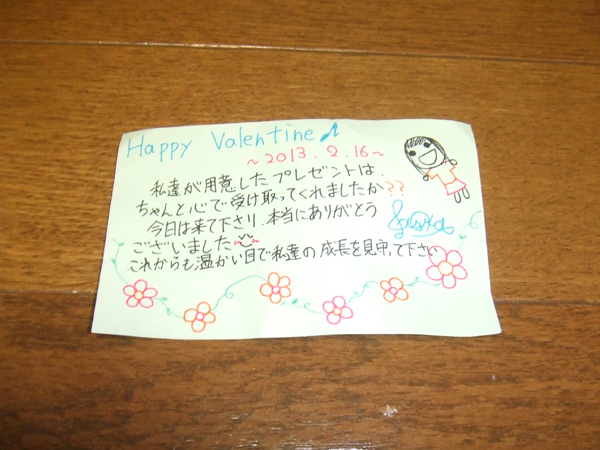 Happy Valentine♪
~2013.2.16~
私達が用意したプレゼントは、
ちゃんと心で受け取ってくれましたか??
今日は来て下さり、本当にありがとう
ございました
これからも温かい目で私達の成長を見守って下さい